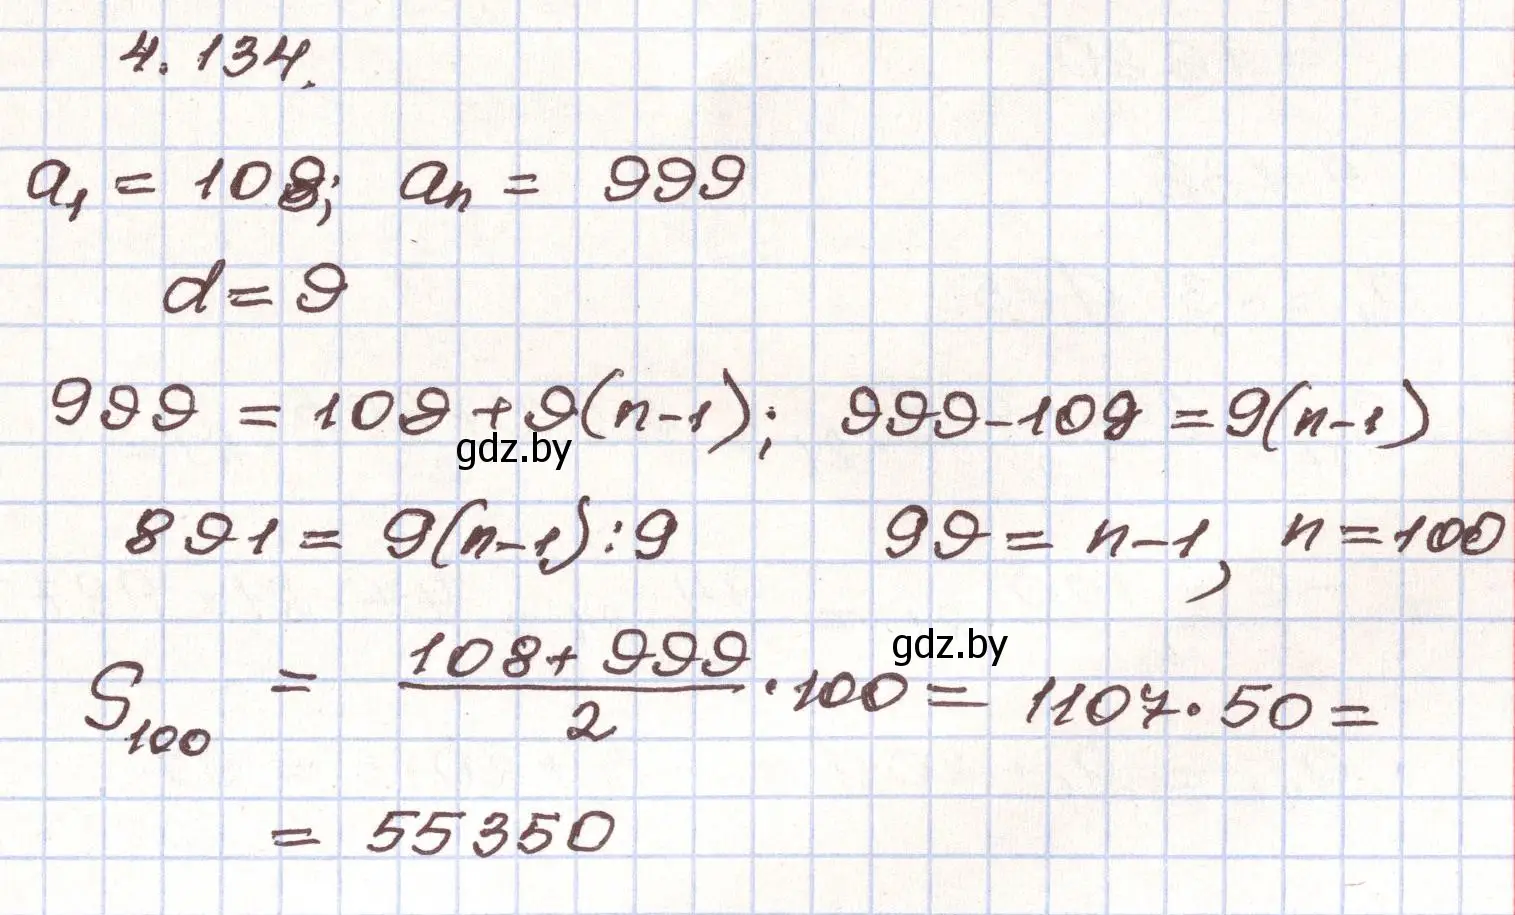 4.134.
a₁ = 108; aₙ = 999
d = 9
999 = 109 + 9(n-1); 999-109 = 9(n-1)
gdz.by
891 = 9(n-1) :9 99 = n-1, n = 100
gdz.by
S₁₀₀ = (108 + 999)/2 · 100 = 1107 · 50 =
= 55350